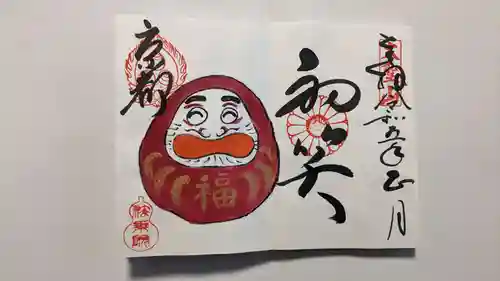 奉拝 令和五年正月
初笑
京都
福